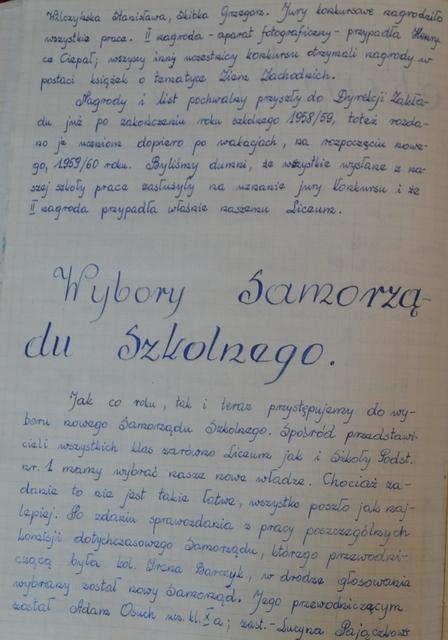 Wilczyńska Stanisława, Skitka Grzegorz. Jury konkursowe nagrodziło
wszystkie prace. II nagroda - aparat fotograficzny - przypadła
ce Ciepał; wszyscy inni uczestnicy konkursu otrzymali nagrody w
postaci książek o tematyce Ziem Zachodnich.
Nagrody i list pochwalny przyszły do Dyrekcji Zakła-
du już po zakończeniu roku szkolnego 1958/59, toteż rozda-
no je uczniom dopiero po wakacjach, na rozpoczęciu nowe-
go, 1959/60 roku. Byliśmy dumni, że wszystkie wysłane z na-
szej szkoły prace zasłużyły na uznanie jury konkursu i że
II nagroda przypadła właśnie naszemu Liceum.
Wybory Samorzą-
du Szkolnego.
Jak co roku, tak i teraz przystępujemy do wy-
boru nowego Samorządu Szkolnego. Spośród przedstawi-
cieli wszystkich klas zarówno Liceum jak i Szkoły Podst.
nr. 1 mamy wybrać nasze nowe władze. Chociaż za-
danie to nie jest takie łatwe, wszystko poszło jak naj-
lepiej. Po zdaniu sprawozdania z pracy poszczególnych
komisji dotychczasowego Samorządu, którego przewodni-
czącą była kol. Irena Barczyk, w drodze głosowania
wybrany został nowy Samorząd. Jego przewodniczącym
został Adam Osuch ucz. kl. X a; zast. - Lucyna Pajączkows